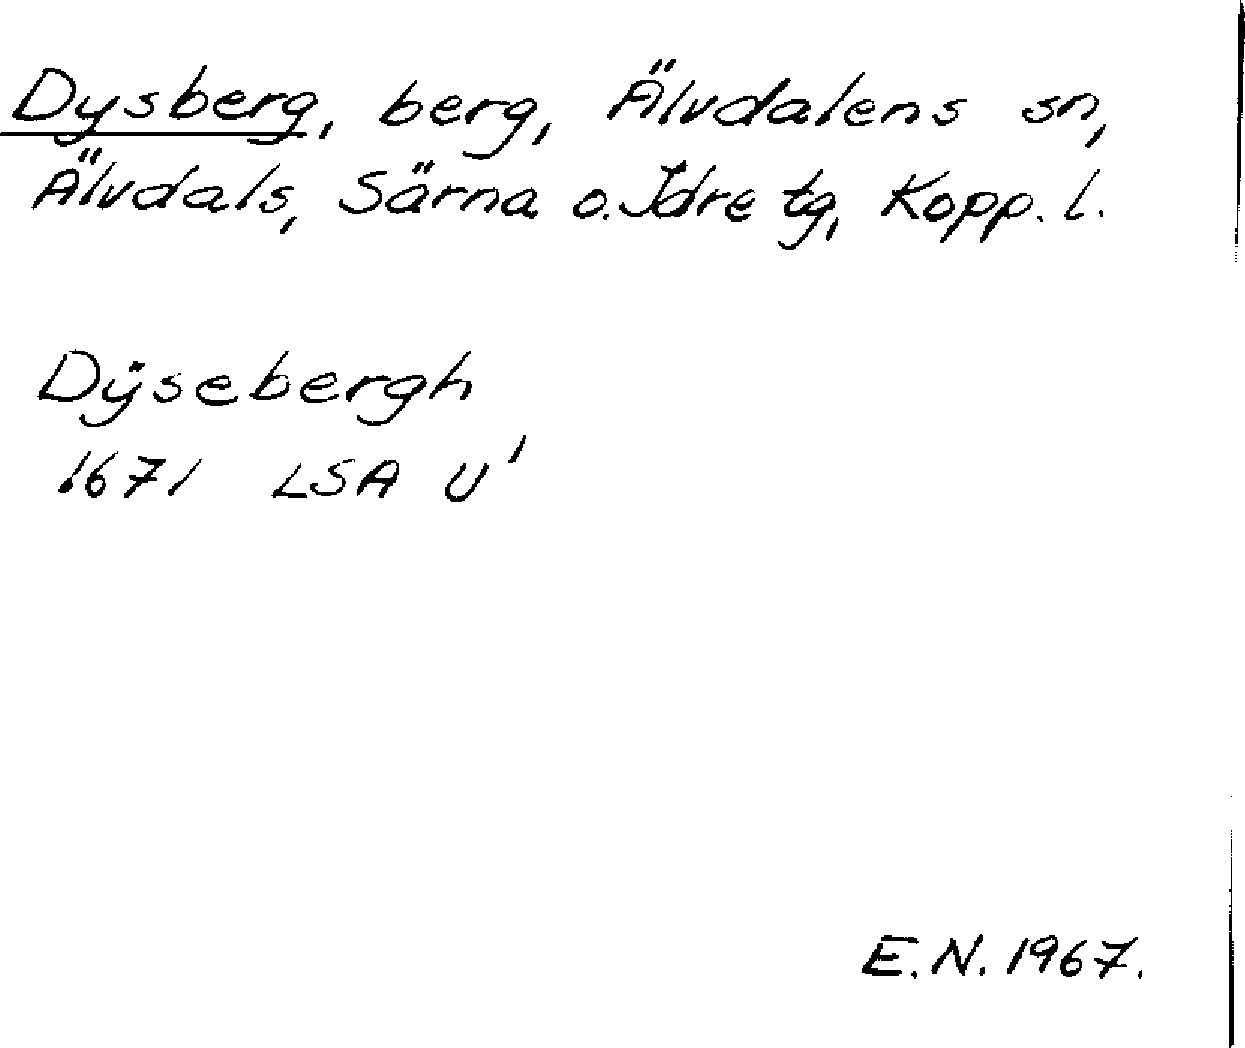 Dysberg, berg, Älvdalens sn,
Älvdals, Särna o. Idre tg, Kopp. l.
Dÿsebergh
1671 LSA U'
E.N. 1967.